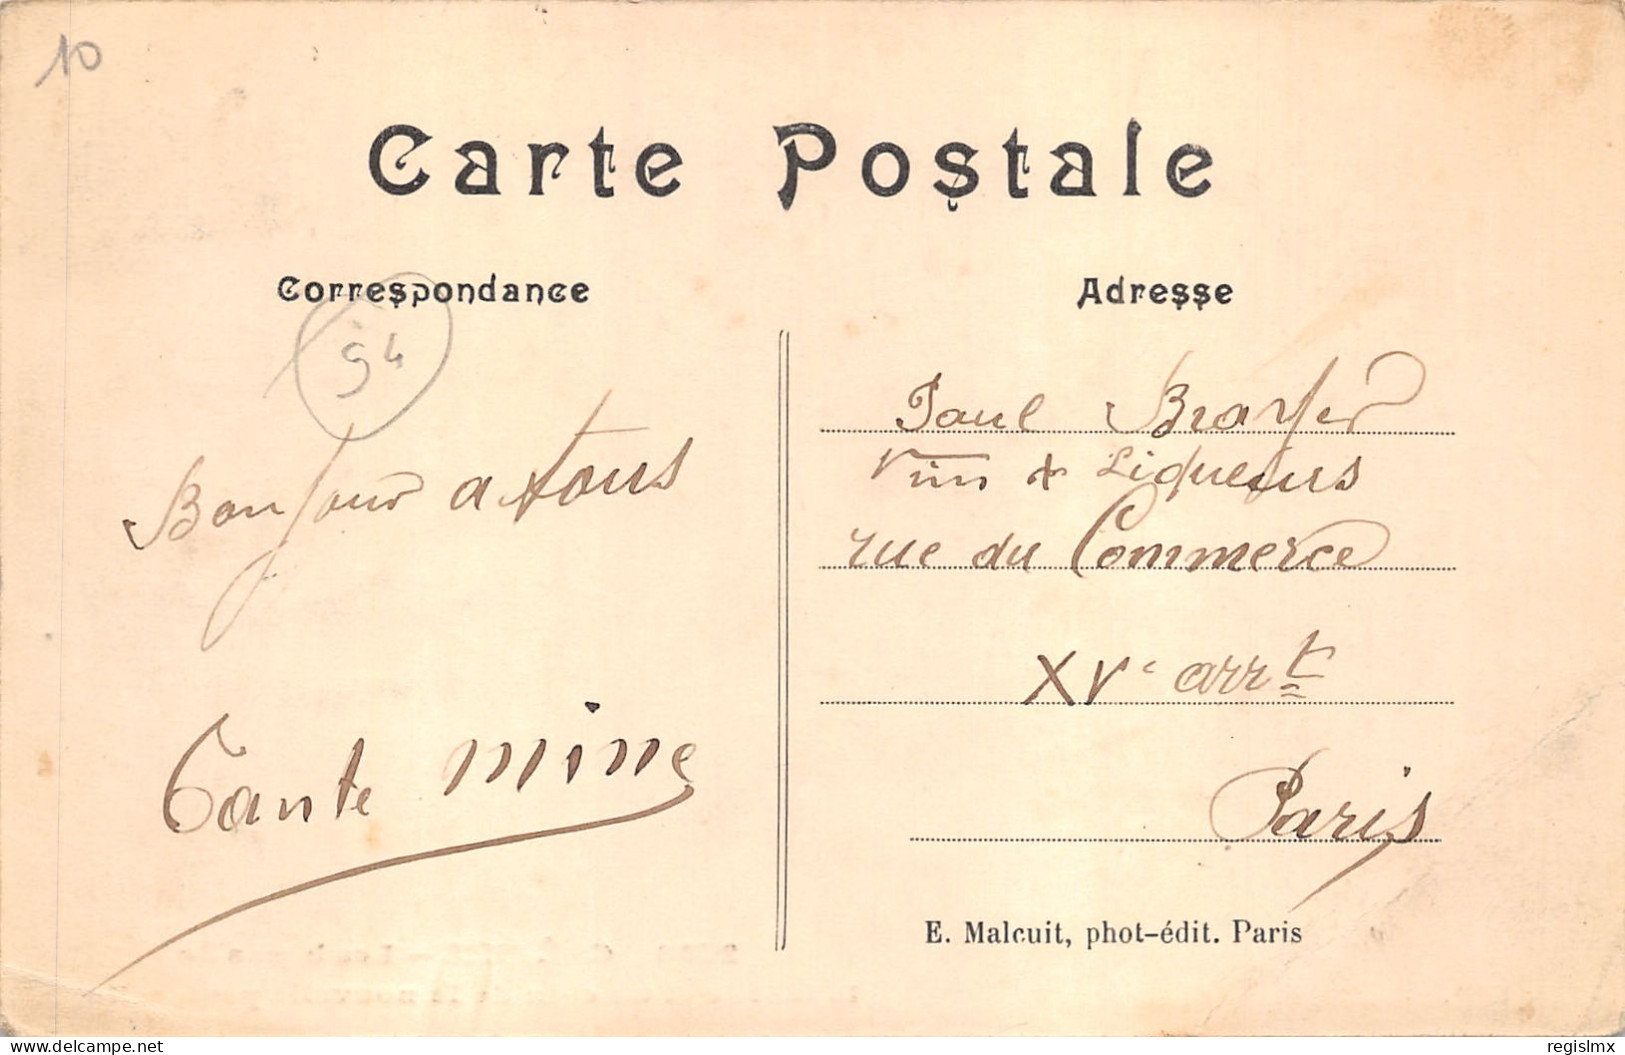 10
Carte Postale
Correspondance
Adresse
94
Bonjour a tous
Tante mine
Paul Brayer
Vins & Liqueurs
rue du Commerce
XVe arrt
Paris
E. Malcuit, phot-édit. Paris
www.delcampe.net
regislmx